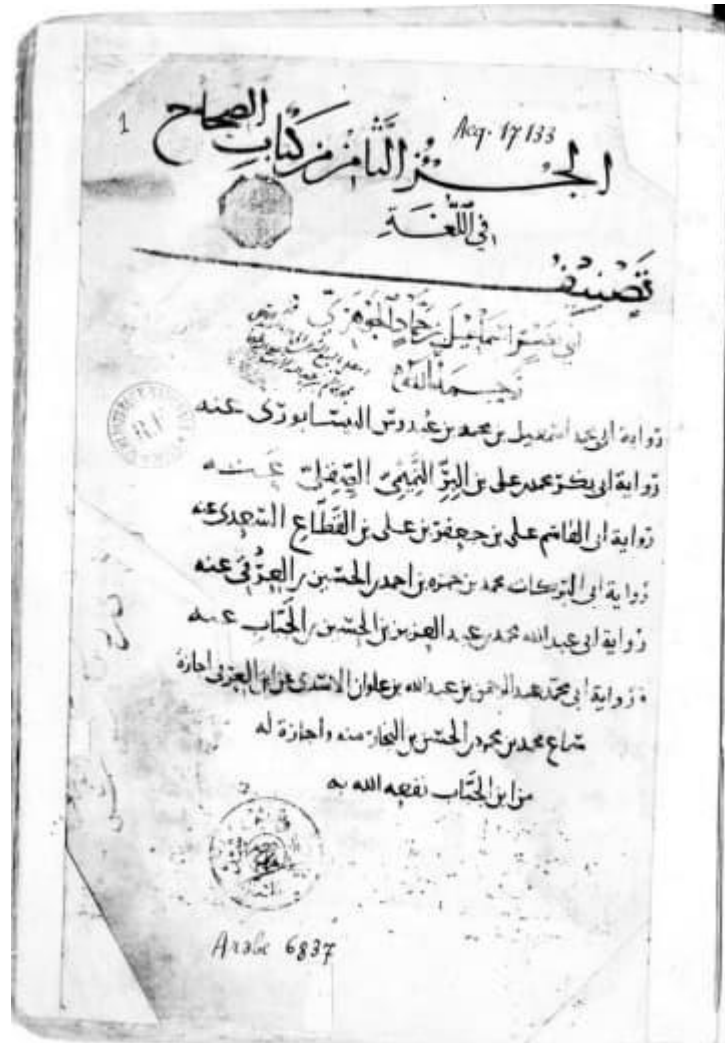 1
Acq. 17133
الجُزءُ الثَّامِنُ مِن كِتَابِ الصِّحَاحِ
فِي اللُّغَةِ
تَصْنِيفُ
أبي نصر اسماعيل بن حماد الجوهري
رحمه الله
R.F
رواية ابي محمد اسمعيل بن محمد بن عبدوس النيسابوري عنه
رواية ابي بكر محمد بن علي بن البر التميمي الصقلي عنه
رواية ابي القاسم علي بن جعفر بن علي بن القطاع السعدي عنه
رواية ابي البركات محمد بن حمزه بن احمد بن الحسين بن العرقي عنه
رواية ابي عبد الله محمد بن عبد العزيز بن الحسين بن الجباب عنه
رواية ابي محمد عبد الرحمن بن عبد الله بن علوان الاسدي عن ابن العرقي اجازة
سماع محمد بن محمود بن الحسن بن النجار منه واجازة له
من ابن الجباب نفعه الله به
Arabe 6837